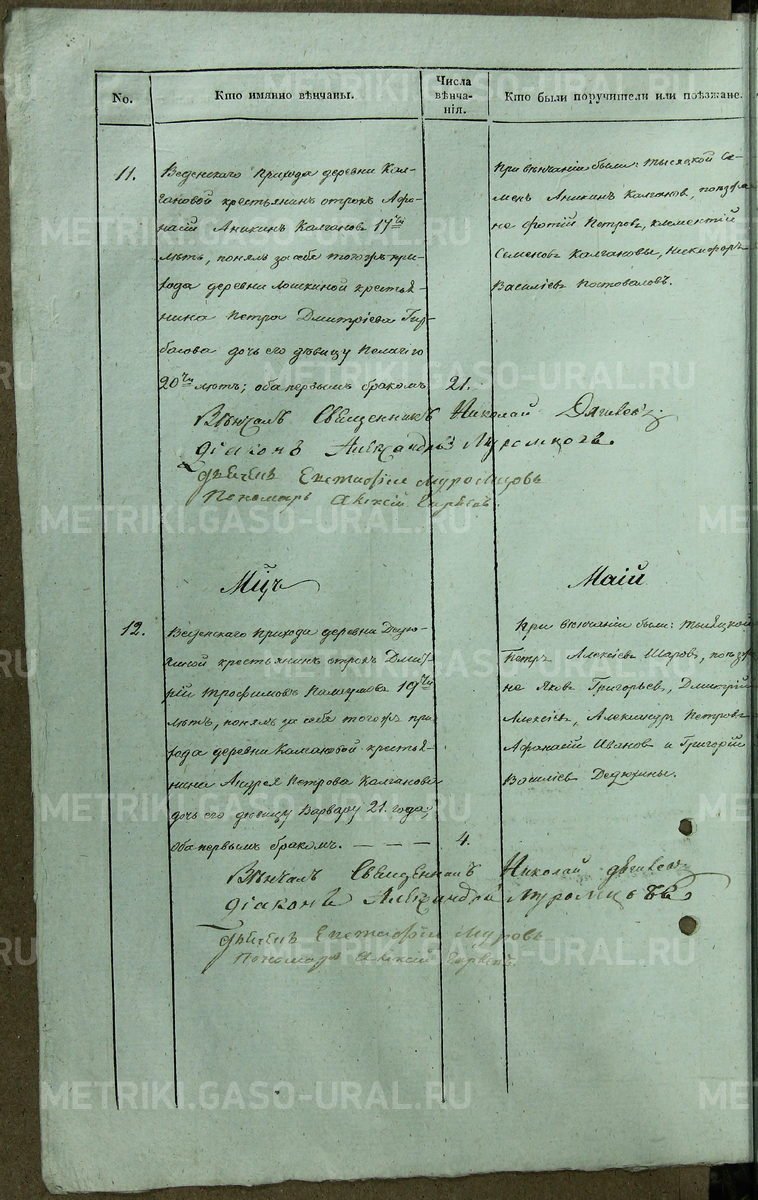 No.
Кто имянно вѣнчаны.
Числа вѣнча-
нія.
Кто были поручители или поѣзжане.
11.
Веденскаго прихода деревни Кал-
гановой крестьянинъ отрокъ Афо-
насій Аникинъ Калгановъ 17ти
лѣтъ, понялъ за себя тогожъ при-
хода деревни Лошкиной крестья-
нина Петра Дмитріева
дочь его дѣвицу Пелагію
20ти лѣтъ; оба первымъ бракомъ 21.
При вѣнчаніи были: тысяцкой Се-
менъ Аникинъ Калгановъ, поѣзжа-
не Фотій Петровъ, Клементій
Семеновъ Калгановы, Никифоръ
Василіевъ Постоваловъ.
Вѣнчалъ Священникъ Николай
Діаконъ Александръ Муромцовъ.
Дьячекъ Евстафій Муромцовъ
Пономарь Алексій
Мцъ Маій
12.
Веденскаго прихода деревни Дедю-
хиной крестьянинъ отрокъ Дмит-
рій Трофимовъ 19ти
лѣтъ, понялъ за себя тогожъ при-
хода деревни Калгановой крестья-
нина Андрея Петрова Калганова
дочь его дѣвицу Варвару 21. года;
оба первымъ бракомъ. — — — 4.
При вѣнчаніи были: тысяцкой
Петръ Алексіевъ Шаровъ, поѣзжа-
не Яковъ Григорьевъ, Дмитрій
Алексіевъ, Александръ Петровъ
Афанасій Ивановъ и Григорій
Василіевъ Дедюхины.
Вѣнчалъ Священникъ Николай
Діаконъ Александръ Муромцовъ
Дьячекъ Евстафій
Пономарь Алексій
METRIKI.GASO-URAL.RU